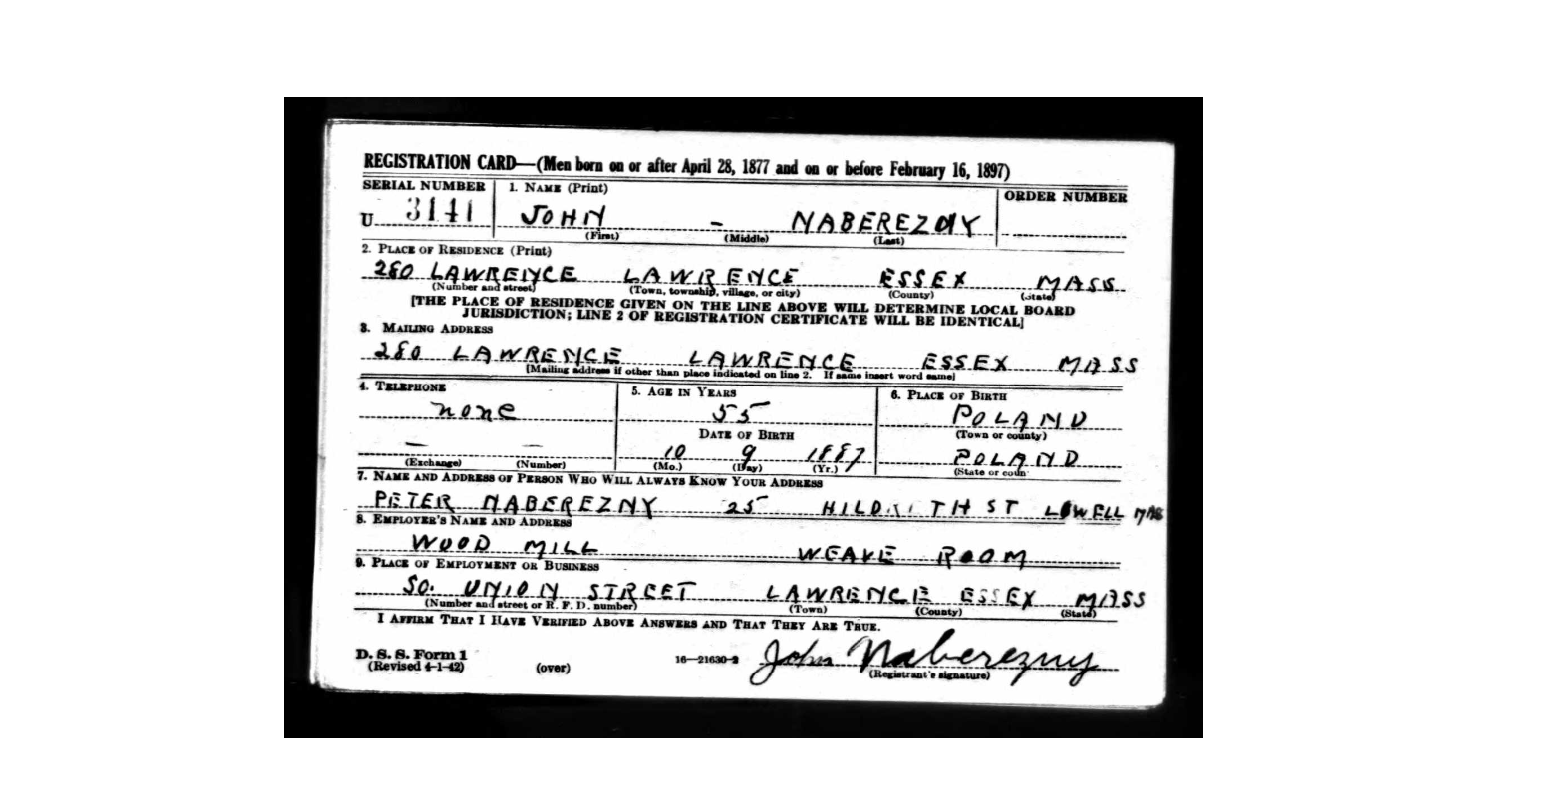 REGISTRATION CARD—(Men born on or after April 28, 1877 and on or before February 16, 1897)
SERIAL NUMBER 1. NAME (Print) ORDER NUMBER
U 3141 JOHN – NABEREZNY
(First) (Middle) (Last)
2. PLACE OF RESIDENCE (Print)
280 LAWRENCE LAWRENCE ESSEX MASS
(Number and street) (Town, township, village, or city) (County) (State)
[THE PLACE OF RESIDENCE GIVEN ON THE LINE ABOVE WILL DETERMINE LOCAL BOARD
JURISDICTION; LINE 2 OF REGISTRATION CERTIFICATE WILL BE IDENTICAL]
3. MAILING ADDRESS
280 LAWRENCE LAWRENCE ESSEX MASS
[Mailing address if other than place indicated on line 2. If same insert word same]
4. TELEPHONE 5. AGE IN YEARS 6. PLACE OF BIRTH
none 55 POLAND
DATE OF BIRTH (Town or county)
– – 10 9 1887 POLAND
(Exchange) (Number) (Mo.) (Day) (Yr.) (State or coun
7. NAME AND ADDRESS OF PERSON WHO WILL ALWAYS KNOW YOUR ADDRESS
PETER NABEREZNY 25 ST LOWELL MAS
8. EMPLOYER'S NAME AND ADDRESS
WOOD MILL WEAVE ROOM
9. PLACE OF EMPLOYMENT OR BUSINESS
SO. UNION STREET LAWRENCE ESSEX MASS
(Number and street or R. F. D. number) (Town) (County) (State)
I AFFIRM THAT I HAVE VERIFIED ABOVE ANSWERS AND THAT THEY ARE TRUE.
D. S. S. Form 1
(Revised 4-1-42) (over) 16—21630-2 John Naberezny
(Registrant's signature)